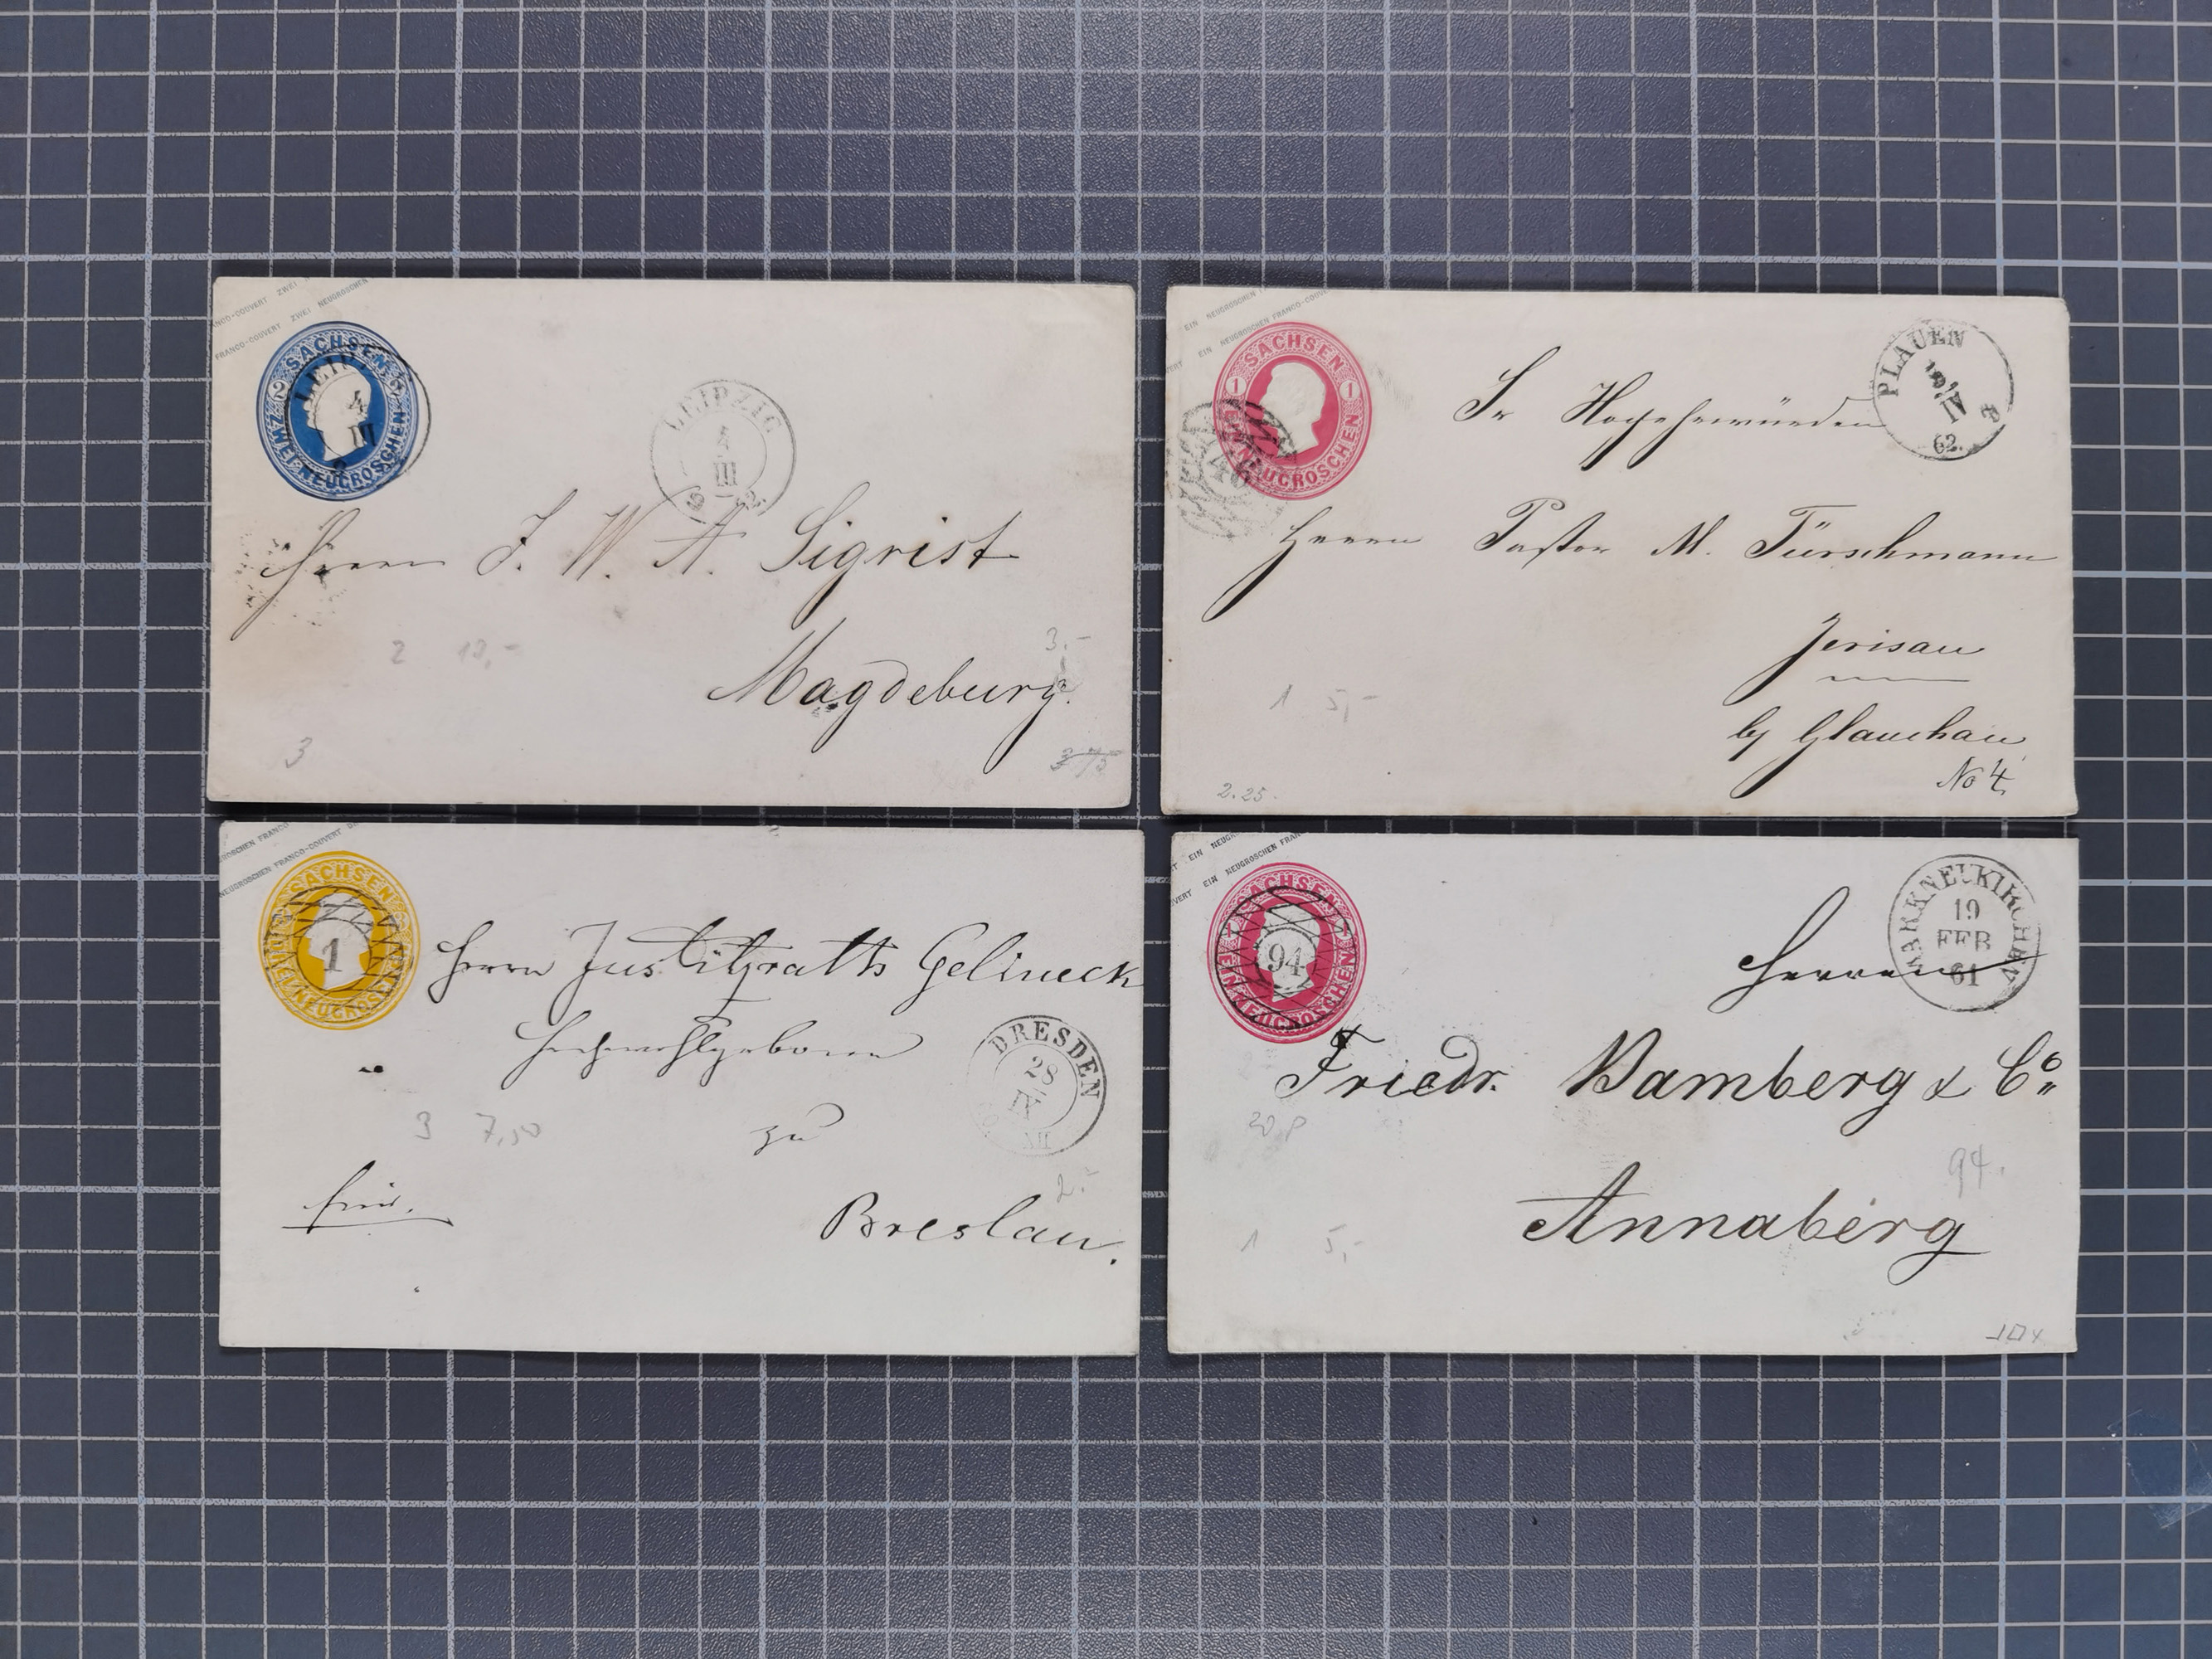 FRANCO-COUVERT ZWEI
FRANCO-COUVERT ZWEI NEUGROSCHEN
2 SACHSEN
ZWEI NEUGROSCHEN
4
III
LEIPZIG
4
III
Herrn J. W. A. Sigrist
2
3.-
Magdeburg.
3
EIN NEUGROSCHEN
EIN NEUGROSCHEN FRANCO-COUVERT
1 SACHSEN 1
EIN NEUGROSCHEN
PLAUEN
VI
62.
Sr Hochehrwürden
Herrn Pastor M. Türschmann
Jerisau
by Glauchau
No 4.
1 5,-
2.25.
NEUGROSCHEN FRANCO
NEUGROSCHEN FRANCO-COUVERT
SACHSEN
NEUGROSCHEN
1
Herrn Justitzraths Gelineck
Hochwohlgeboren
DRESDEN
28
IX
3 7,50
zu
2.-
frei.
Breslau.
EIN NEUGROSCHEN
EIN NEUGROSCHEN FRANCO
SACHSEN
EIN NEUGROSCHEN
94
MARKNEUKIRCHEN
19
FEB
61
Herren
Friedr. Bamberg & Co
94.
1 5,-
Annaberg